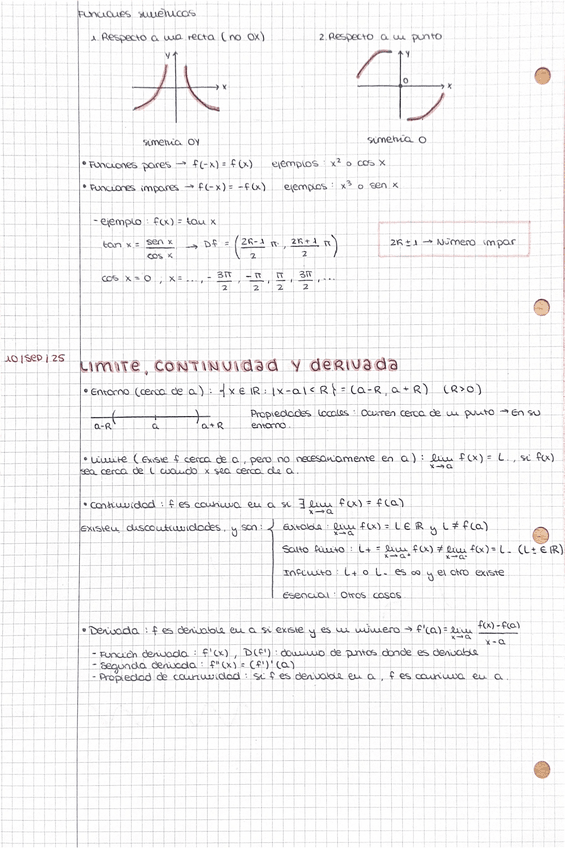 Funciones simétricas
1. Respecto a una recta (no OX)
2. Respecto a un punto
Y
X
Y
O
X
simetría OY
simetría O
• Funciones pares → f(-x) = f(x) ejemplos: x² o cos x
• Funciones impares → f(-x) = -f(x) ejemplos: x³ o sen x
- ejemplo: f(x) = tan x
tan x = sen x / cos x → Df = ( 2K-1 / 2 π, 2K+1 / 2 π )
2K ± 1 → Número impar
cos x = 0, x = ..., - 3π/2, -π/2, π/2, 3π/2, ...
10/SEP/25
LIMITE, CONTINUIDAD Y DERIVADA
• Entorno (cerca de a): {x ∈ ℝ: |x-a| < R} = (a-R, a+R) (R>0)
a-R a a+R
Propiedades locales: Ocurren cerca de un punto → En su
entorno.
• Límite (Existe f cerca de a, pero no necesariamente en a): lim x→a f(x) = L, si f(x)
sea cerca de L cuando x sea cerca de a.
• Continuidad: f es continua en a si ∃ lim x→a f(x) = f(a)
Existen discontinuidades, y son:
Evitable: lim x→a f(x) = L ∈ ℝ y L ≠ f(a)
Salto finito: L+ = lim x→a⁺ f(x) ≠ lim x→a⁻ f(x) = L- (L± ∈ ℝ)
Infinito: L+ o L- es ∞ y el otro existe
Esencial: Otros casos
• Derivada: f es derivable en a si existe y es un número → f'(a) = lim x→a f(x)-f(a) / x-a
- Función derivada: f'(x), D(f'): dominio de puntos donde es derivable
- Segunda derivada: f''(x) = (f')'(a)
- Propiedad de continuidad: si f es derivable en a, f es continua en a.